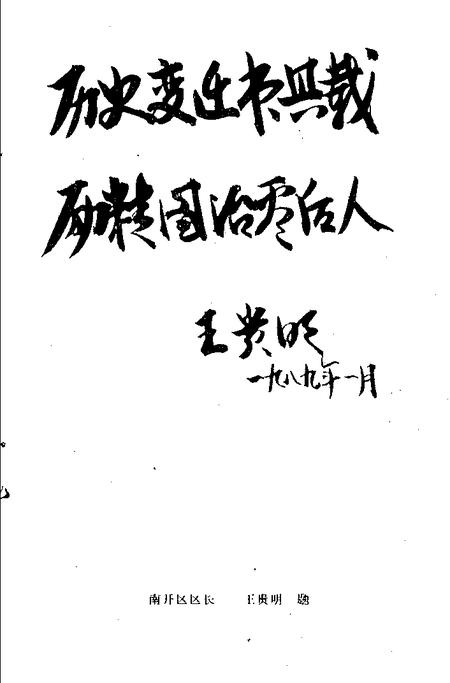 历史变迁书具载
励精图治看后人
王贵明
一九八九年一月
南开区区长 王贵明 题